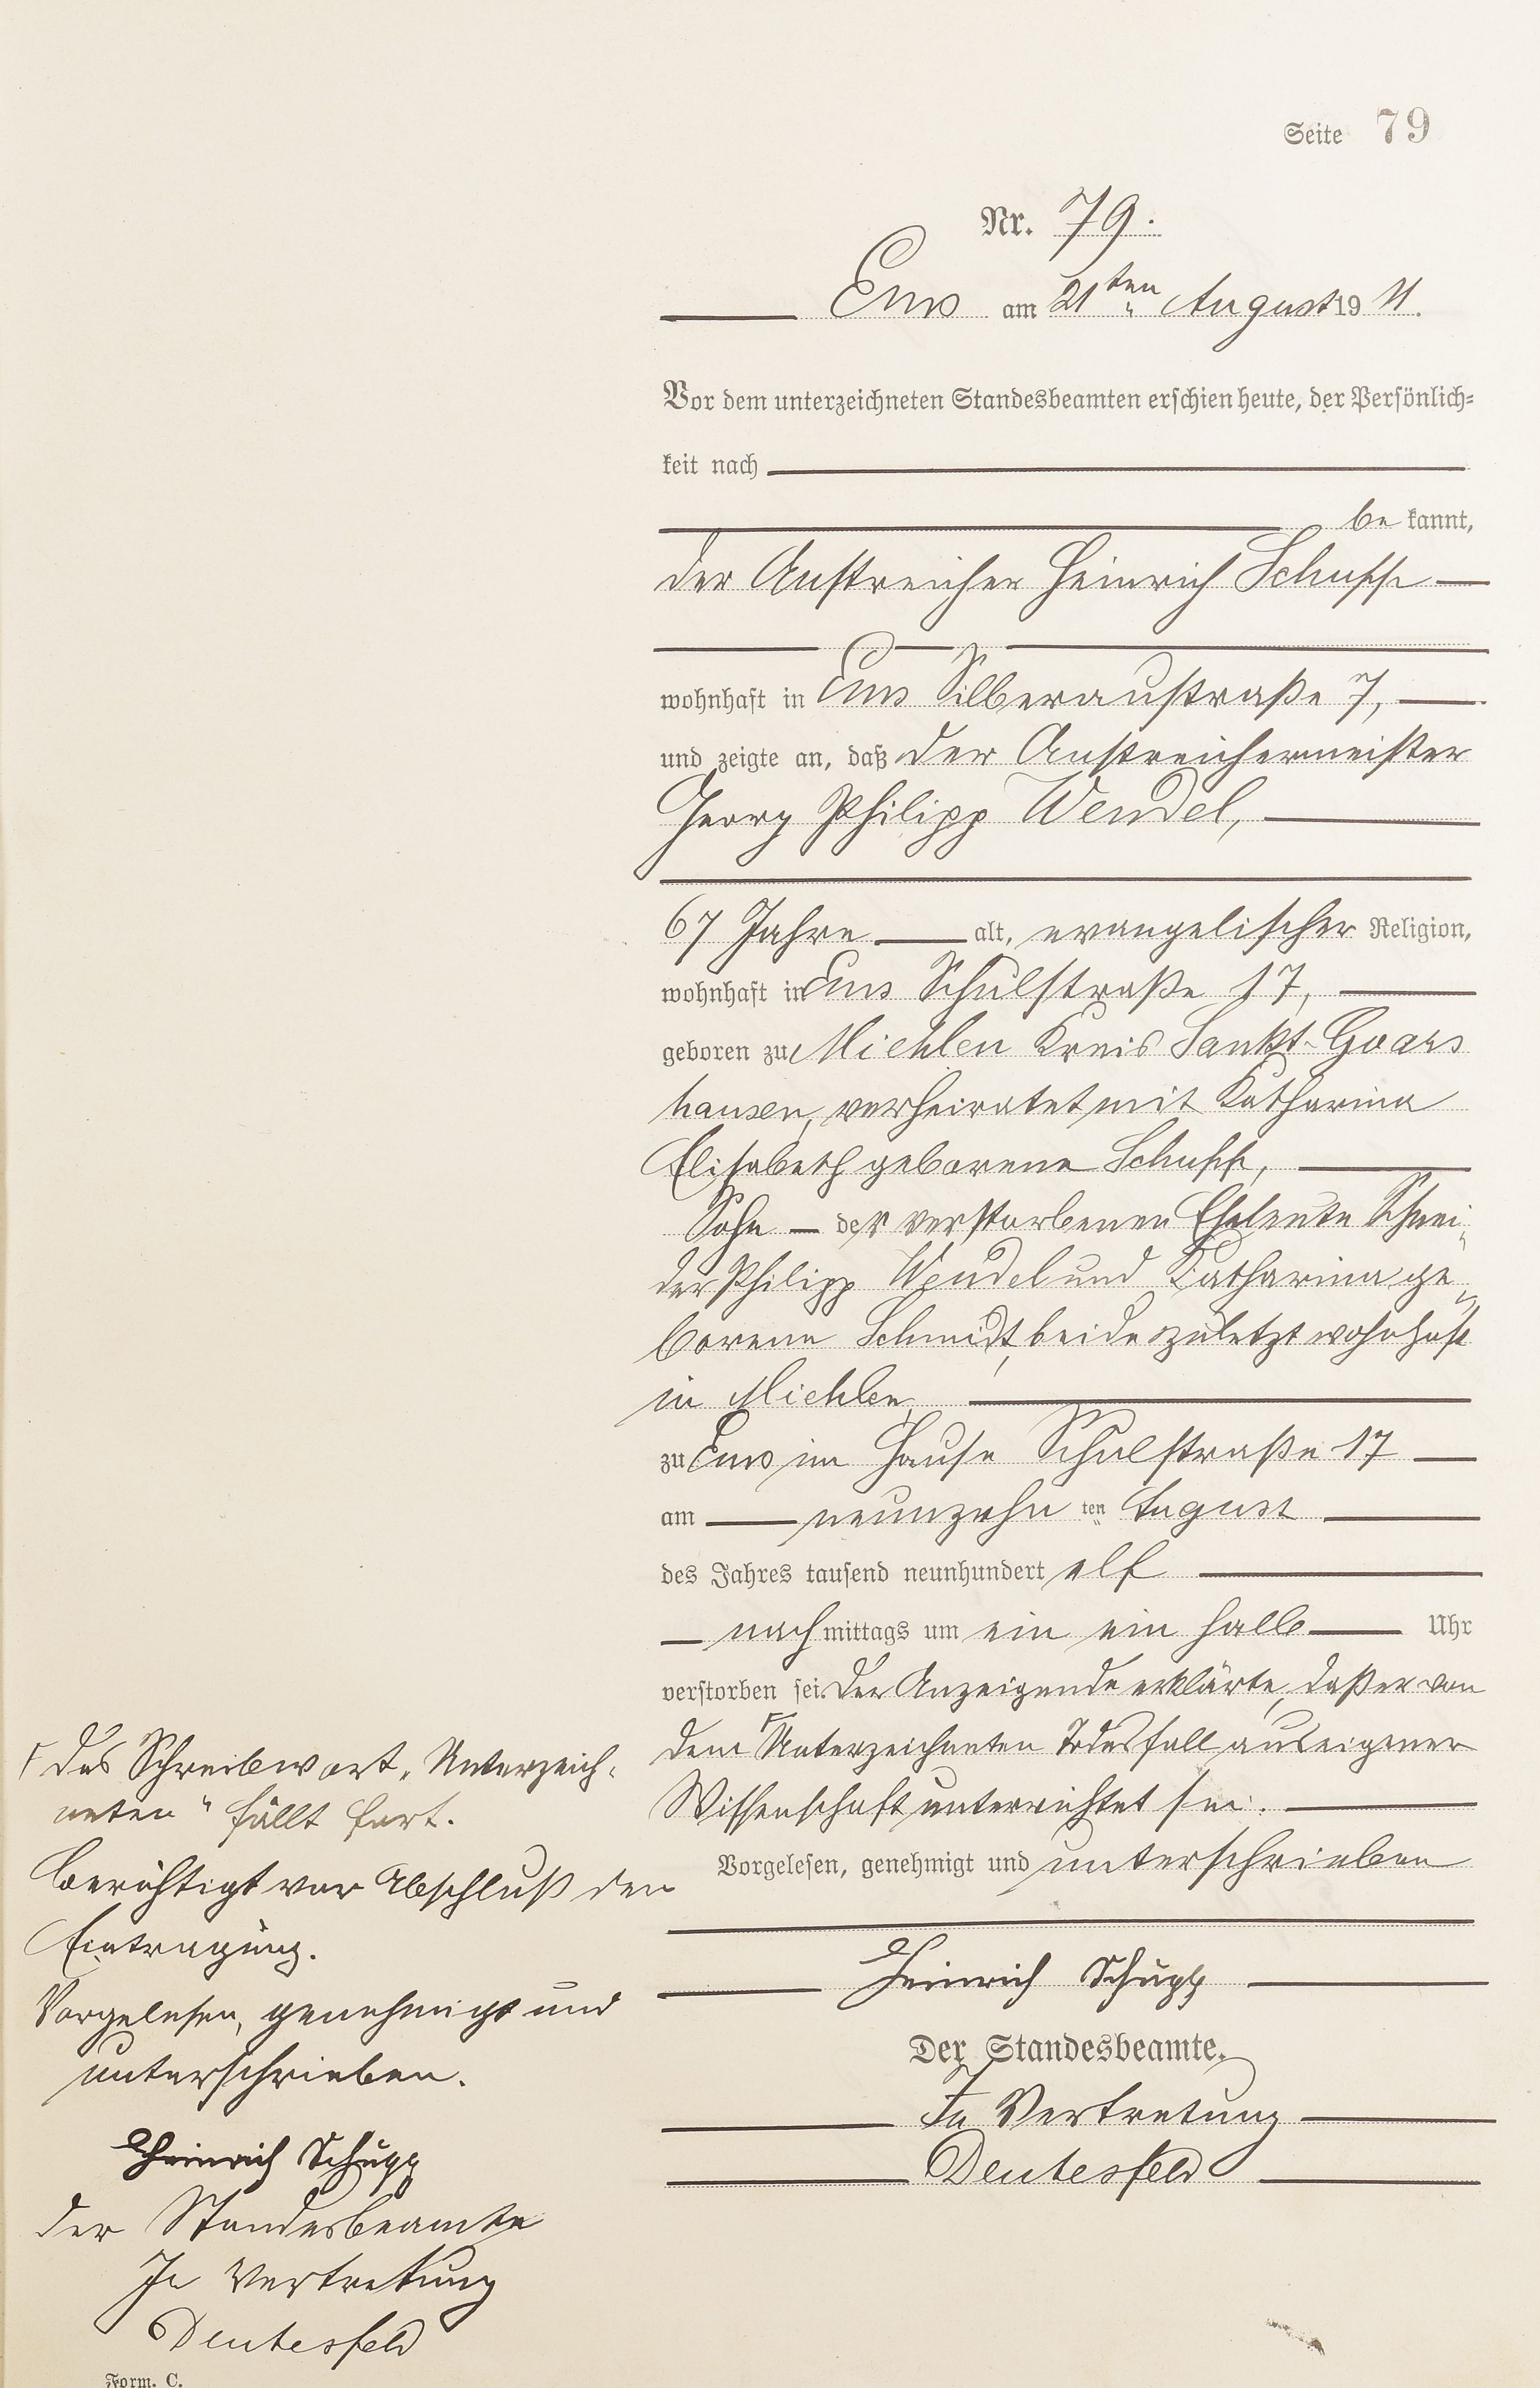 Seite 79
Nr. 79.
Ems am 21ten August 1911.
Vor dem unterzeichneten Standesbeamten erschien heute, der Persönlich-
keit nach
be kannt,
der Anstreicher Heinrich Schupp
wohnhaft in Ems Silberaustraße 7,
und zeigte an, daß der Anstreichermeister
Georg Philipp Wendel,
67 Jahre alt, evangelischer Religion,
wohnhaft in Ems Schulstraße 17,
geboren zu Miehlen Kreis Sankt-Goars
hausen, verheiratet mit Katharina
Elisabeth geborene Schupp,
Sohn der verstorbenen Eheleute Schnei-
der Philipp Wendel und Katharina ge-
borene Schmidt, beide zuletzt wohnhaft
in Miehlen,
zu Ems im Hause Schulstraße 17
am neunzehn ten August
des Jahres tausend neunhundert elf
nachmittags um ein ein halb Uhr
verstorben sei. Der Anzeigende erklärte, daß er von
dem Unterzeichneten Todesfall aus eigener
Wissenschaft unterrichtet sei.
Vorgelesen, genehmigt und unterschrieben
Heinrich Schupp
Der Standesbeamte.
In Vertretung
Deutesfeld
Das Schreibwort „Unterzeich-
neten" fällt fort.
Berichtigt vor Abschluß der
Eintragung.
Vorgelesen, genehmigt und
unterschrieben.
Heinrich Schupp
Der Standesbeamte
In Vertretung
Deutesfeld
Form. C.